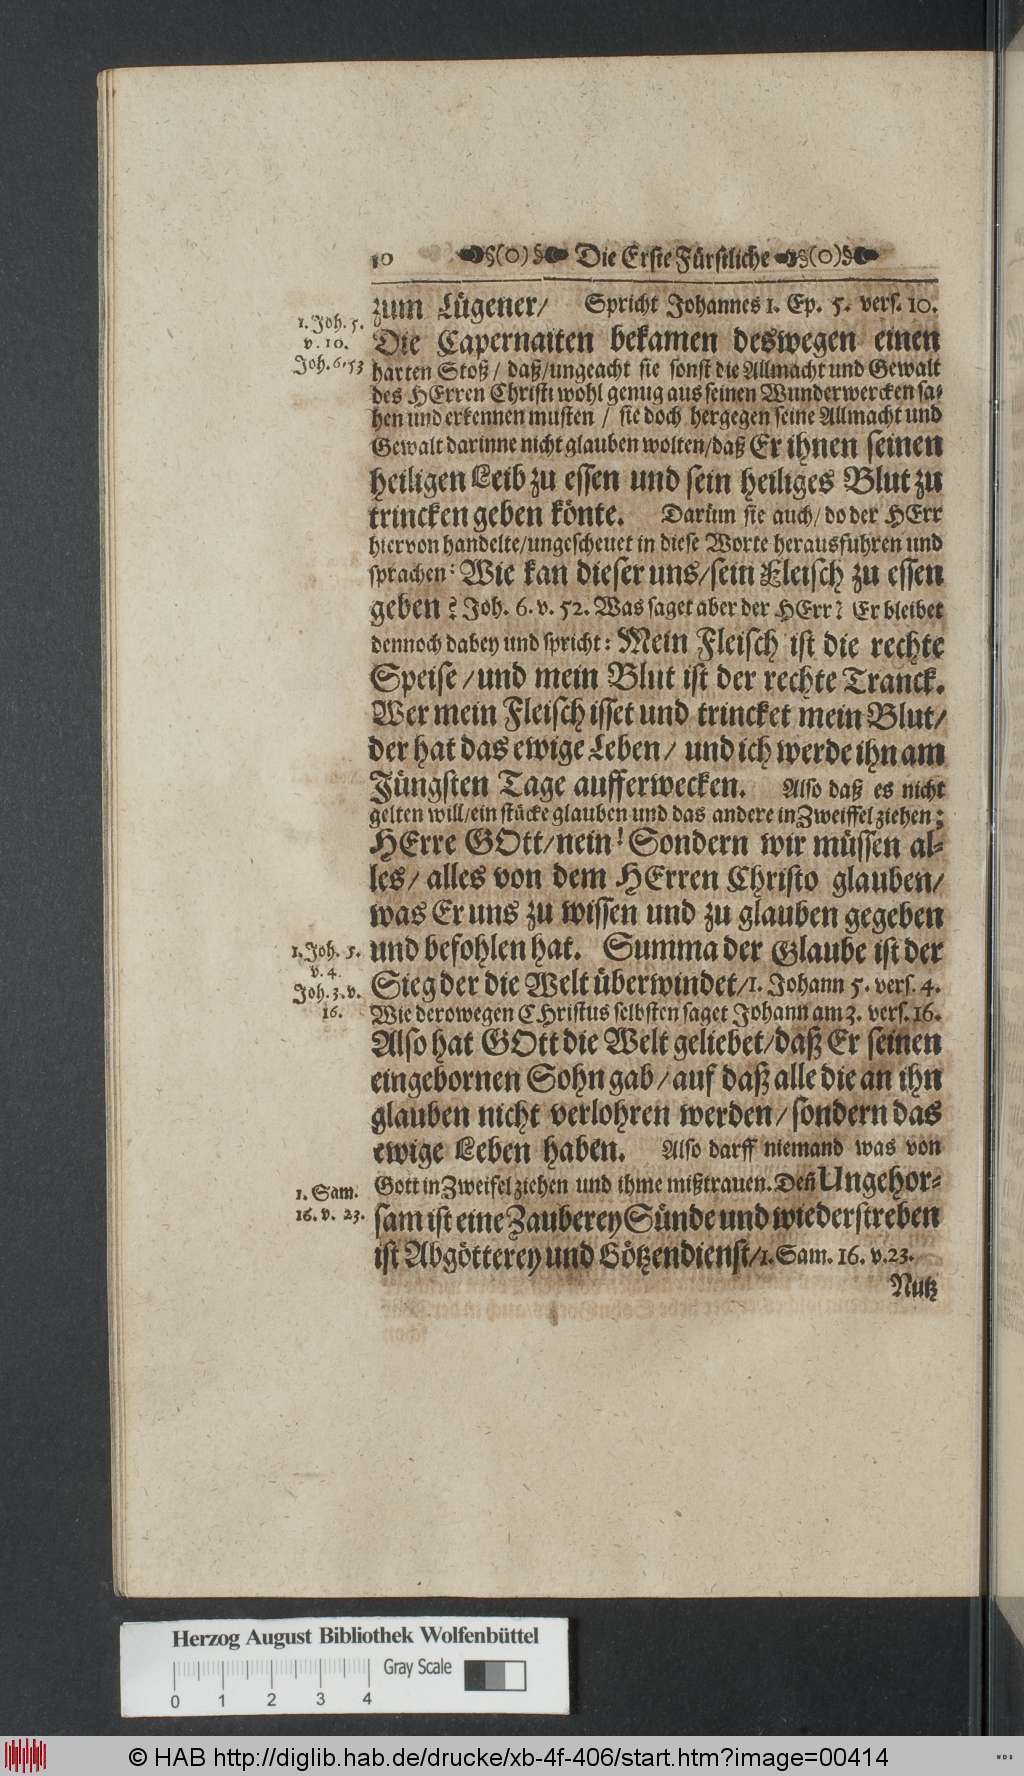 10 §(o)§ Die Erste Fürstliche §(o)§
1. Joh. 5.
v. 10.
Joh. 6. 53
zum Lügener/ Spricht Johannes 1. Ep. 5. vers. 10.
Die Capernaiten bekamen deswegen einen
harten Stoß/ daß/ungeacht sie sonst die Allmacht und Gewalt
des HErren Christi wohl genug aus seinen Wunderwercken sa-
hen und erkennen musten / sie doch hergegen seine Allmacht und
Gewalt darinne nicht glauben wolten/daß Er ihnen seinen
heiligen Leib zu essen und sein heiliges Blut zu
trincken geben könte. Darüm sie auch/ do der HErr
hiervon handelte/ungescheuet in diese Worte herausfuhren und
sprachen: Wie kan dieser uns/sein Fleisch zu essen
geben? Joh. 6. v. 52. Was saget aber der HErr? Er bleibet
dennoch dabey und spricht: Mein Fleisch ist die rechte
Speise/und mein Blut ist der rechte Tranck.
Wer mein Fleisch isset und trincket mein Blut/
der hat das ewige Leben/ und ich werde ihn am
Jüngsten Tage aufferwecken. Also daß es nicht
gelten will/ein stücke glauben und das andere in Zweiffel ziehen;
HErre GOtt/nein! Sondern wir müssen al-
les/ alles von dem HErren Christo glauben/
was Er uns zu wissen und zu glauben gegeben
und befohlen hat. Summa der Glaube ist der
Sieg der die Welt überwindet/1. Johann 5. vers. 4.
Wie derowegen CHristus selbsten saget Johann am 3. vers. 16.
Also hat GOtt die Welt geliebet/daß Er seinen
eingebornen Sohn gab/auf daß alle die an ihn
glauben nicht verlohren werden/sondern das
ewige Leben haben. Also darff niemand was von
Gott in Zweifel ziehen und ihme mißtrauen. Deñ Ungehor-
sam ist eine Zauberey Sünde und wiederstreben
ist Abgötterey und Götzendienst/1. Sam. 16. v. 23.
1. Joh. 5.
v. 4.
Joh. 3. v.
16.
1. Sam.
16. v. 23.
Nutz
Herzog August Bibliothek Wolfenbüttel
Gray Scale
0 1 2 3 4
© HAB http://diglib.hab.de/drucke/xb-4f-406/start.htm?image=00414